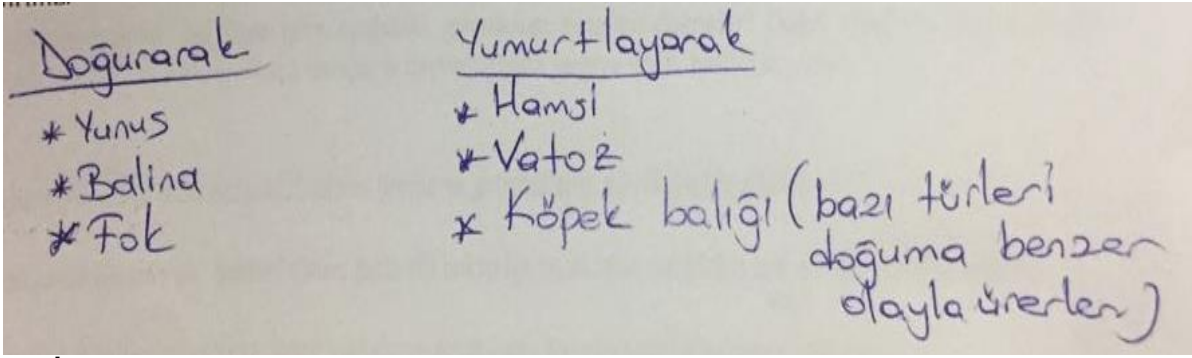 Doğurarak
* Yunus
* Balina
* Fok
Yumurtlayarak
* Hamsi
* Vatoz
* Köpek balığı (bazı türleri
doğuma benzer
olayla ürerler)